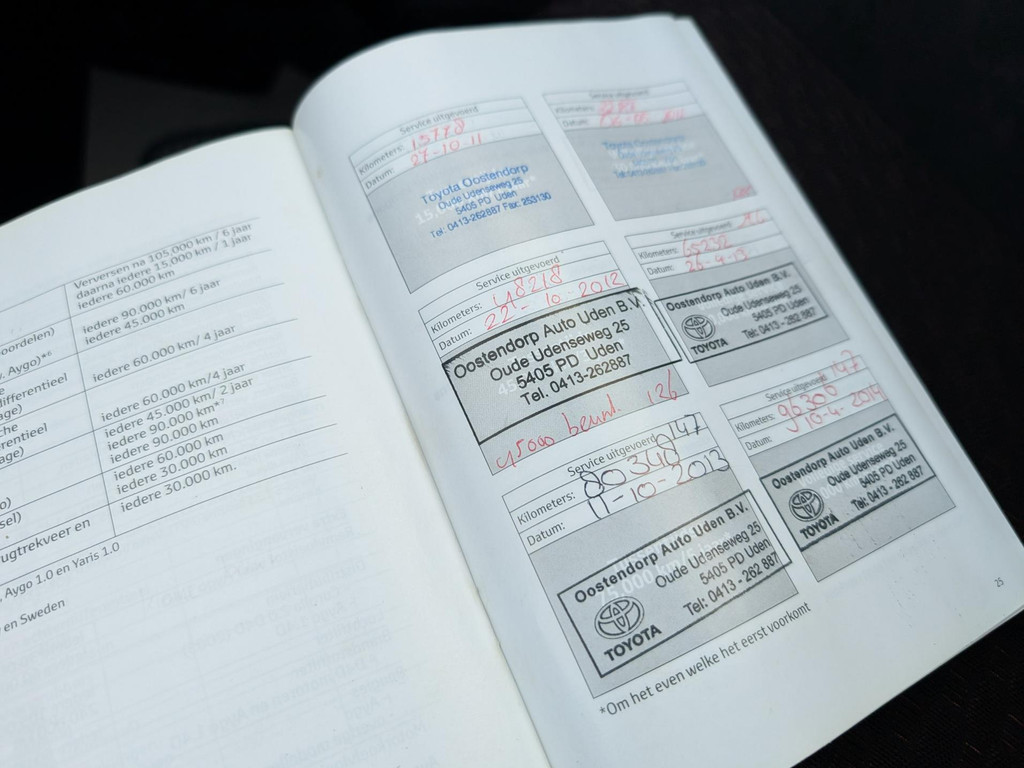 Verversen na 105.000 km / 6 jaar
daarna iedere 15.000 km / 1 jaar
iedere 60.000 km
iedere 90.000 km/ 6 jaar
oordelen) iedere 45.000 km
, Aygo)*⁶
differentieel iedere 60.000 km/ 4 jaar
age)
che iedere 60.000 km/4 jaar
erentieel iedere 45.000 km/ 2 jaar
age) iedere 90.000 km*⁷
iedere 90.000 km
o) iedere 60.000 km
sel) iedere 30.000 km
ugtrekveer en iedere 30.000 km.
, Aygo 1.0 en Yaris 1.0
en Sweden
Service uitgevoerd
Kilometers: 15778
Datum: 27-10-11
Toyota Oostendorp
Oude Udenseweg 25
5405 PD Uden
Tel: 0413-262887 Fax: 253130
Service uitgevoerd
Kilometers:
Datum:
Service uitgevoerd
Kilometers: 48218
Datum: 22-10-2012
Oostendorp Auto Uden B.V.
Oude Udenseweg 25
5405 PD Uden
Tel. 0413-262887
45000 beurt. 126
Service uitgevoerd
Kilometers: 65232
Datum: 26-4-13
Oostendorp Auto Uden B.V.
Oude Udenseweg 25
5405 PD Uden
Tel: 0413 - 262 887
TOYOTA
Service uitgevoerd 147
Kilometers: 80340
Datum: 1-10-2013
Oostendorp Auto Uden B.V.
Oude Udenseweg 25
5405 PD Uden
Tel: 0413 - 262 887
TOYOTA
Service uitgevoerd 147
Kilometers: 96300
Datum: 10-4-2014
Oostendorp Auto Uden B.V.
Oude Udenseweg 25
5405 PD Uden
Tel: 0413 - 262 887
TOYOTA
*Om het even welke het eerst voorkomt
25